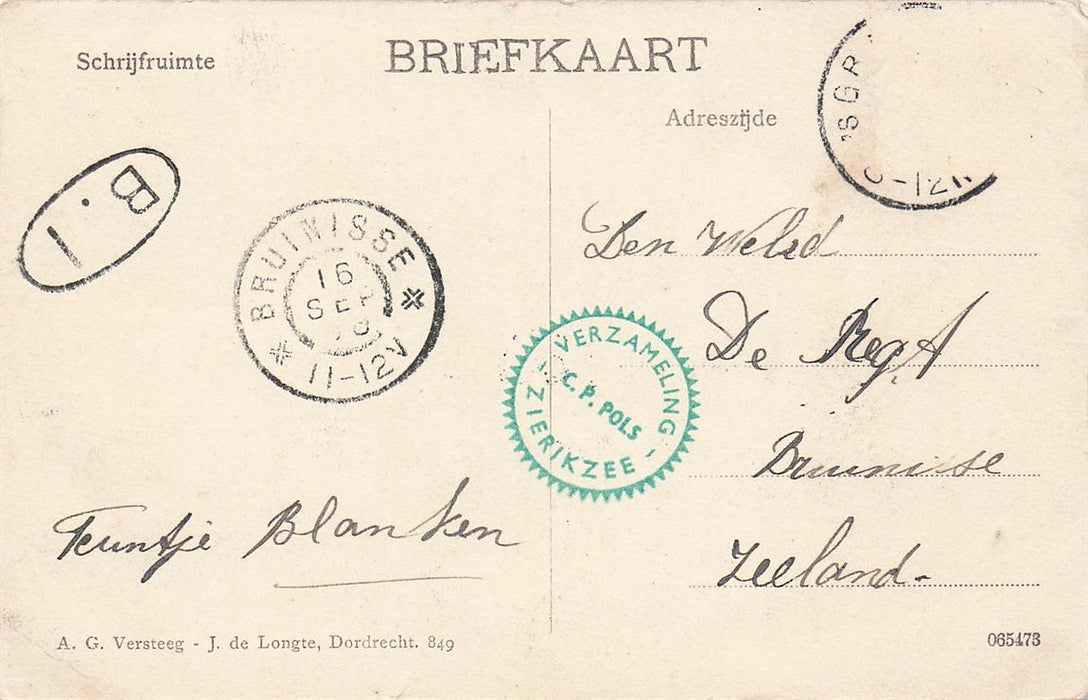 BRIEFKAART
Schrijfruimte
Adreszijde
B. I
BRUINISSE
16
SEP
11-12V
'SGR
-12
VERZAMELING
C. P. POLS
- ZIERIKZEE -
Den Weled
De Regt
Bruinisse
Zeeland.
Teuntje Blanken
A. G. Versteeg - J. de Longte, Dordrecht. 849
065473